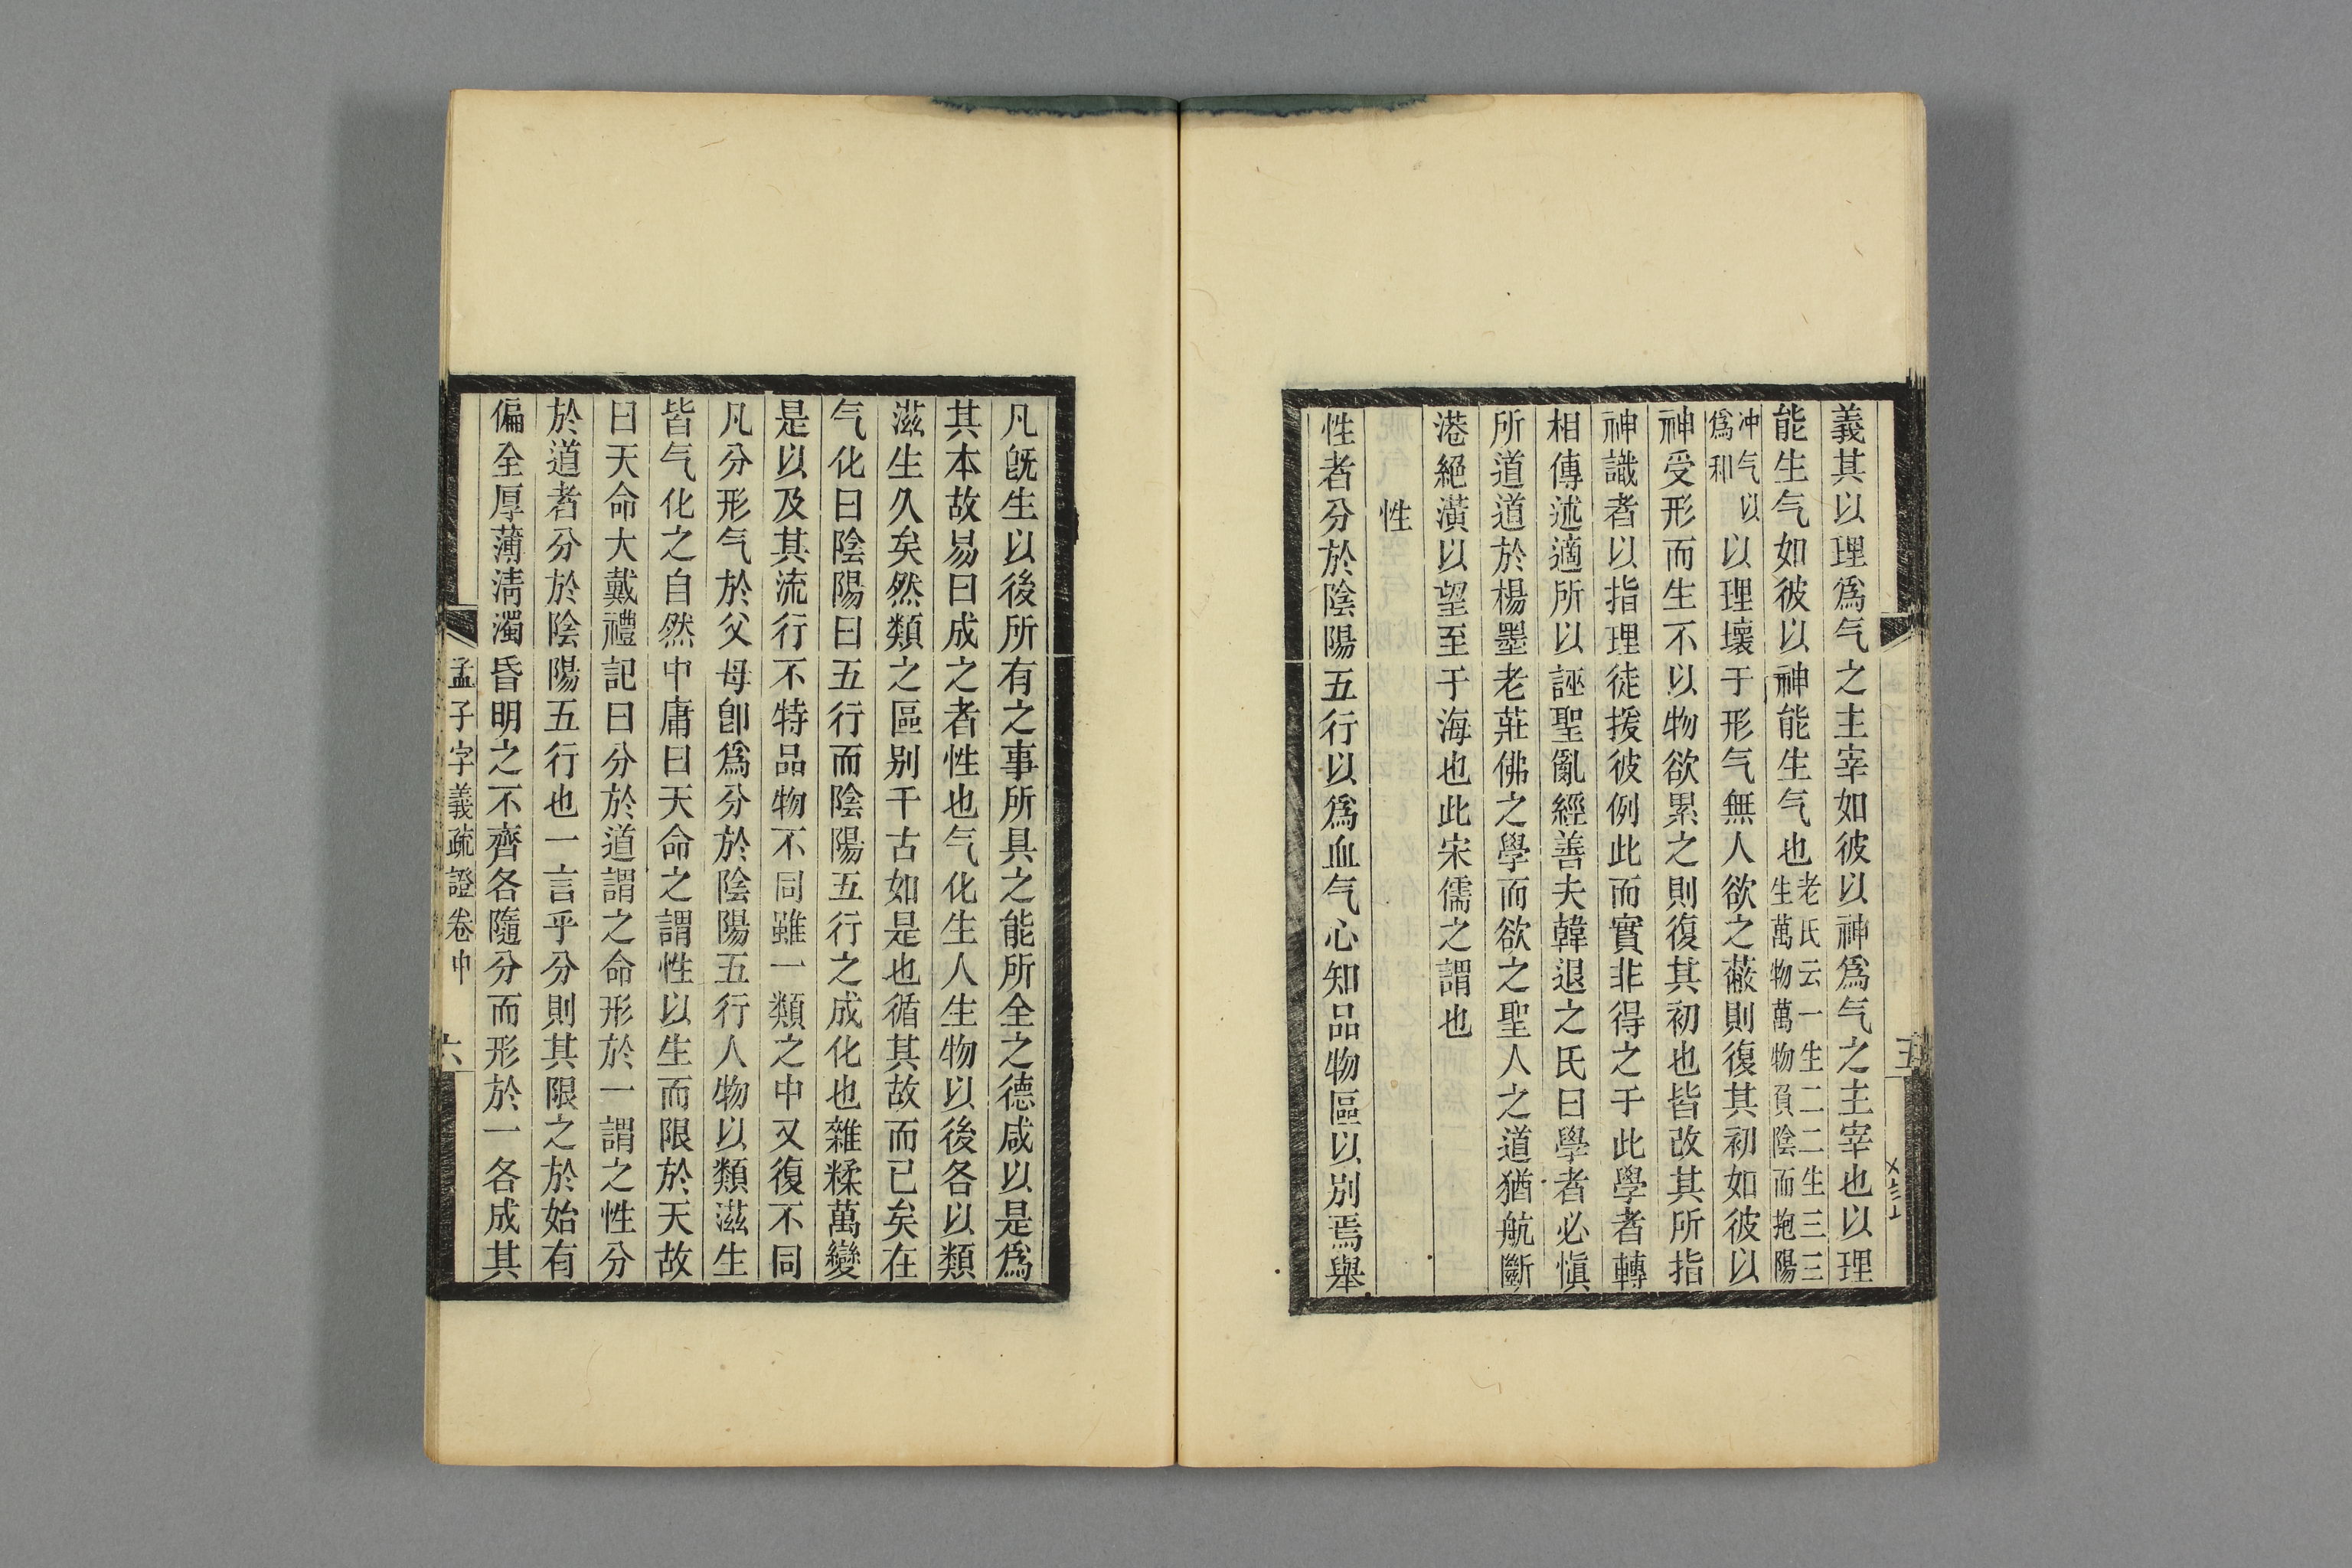 義其以理爲气之主宰如彼以神爲气之主宰也以理
能生气如彼以神能生气也老氏云一生二二生三三
生萬物萬物負陰而抱陽
冲气以
爲和
以理壞于形气無人欲之蔽則復其初如彼以
神受形而生不以物欲累之則復其初也皆改其所指
神識者以指理徒援彼例此而實非得之于此學者轉
相傳述適所以誣聖亂經善夫韓退之氏曰學者必愼
所道道於楊墨老莊佛之學而欲之聖人之道猶航斷
港絕潢以望至于海也此宋儒之謂也
性
性者分於陰陽五行以爲血气心知品物區以別焉舉
五
凡旣生以後所有之事所具之能所全之德咸以是爲
其本故易曰成之者性也气化生人生物以後各以類
滋生久矣然類之區别千古如是也循其故而已矣在
气化曰陰陽曰五行而陰陽五行之成化也雜糅萬變
是以及其流行不特品物不同雖一類之中又復不同
凡分形气於父母卽爲分於陰陽五行人物以類滋生
皆气化之自然中庸曰天命之謂性以生而限於天故
曰天命大戴禮記曰分於道謂之命形於一謂之性分
於道者分於陰陽五行也一言乎分則其限之於始有
偏全厚薄淸濁昏明之不齊各隨分而形於一各成其
孟子字義疏證卷中
六